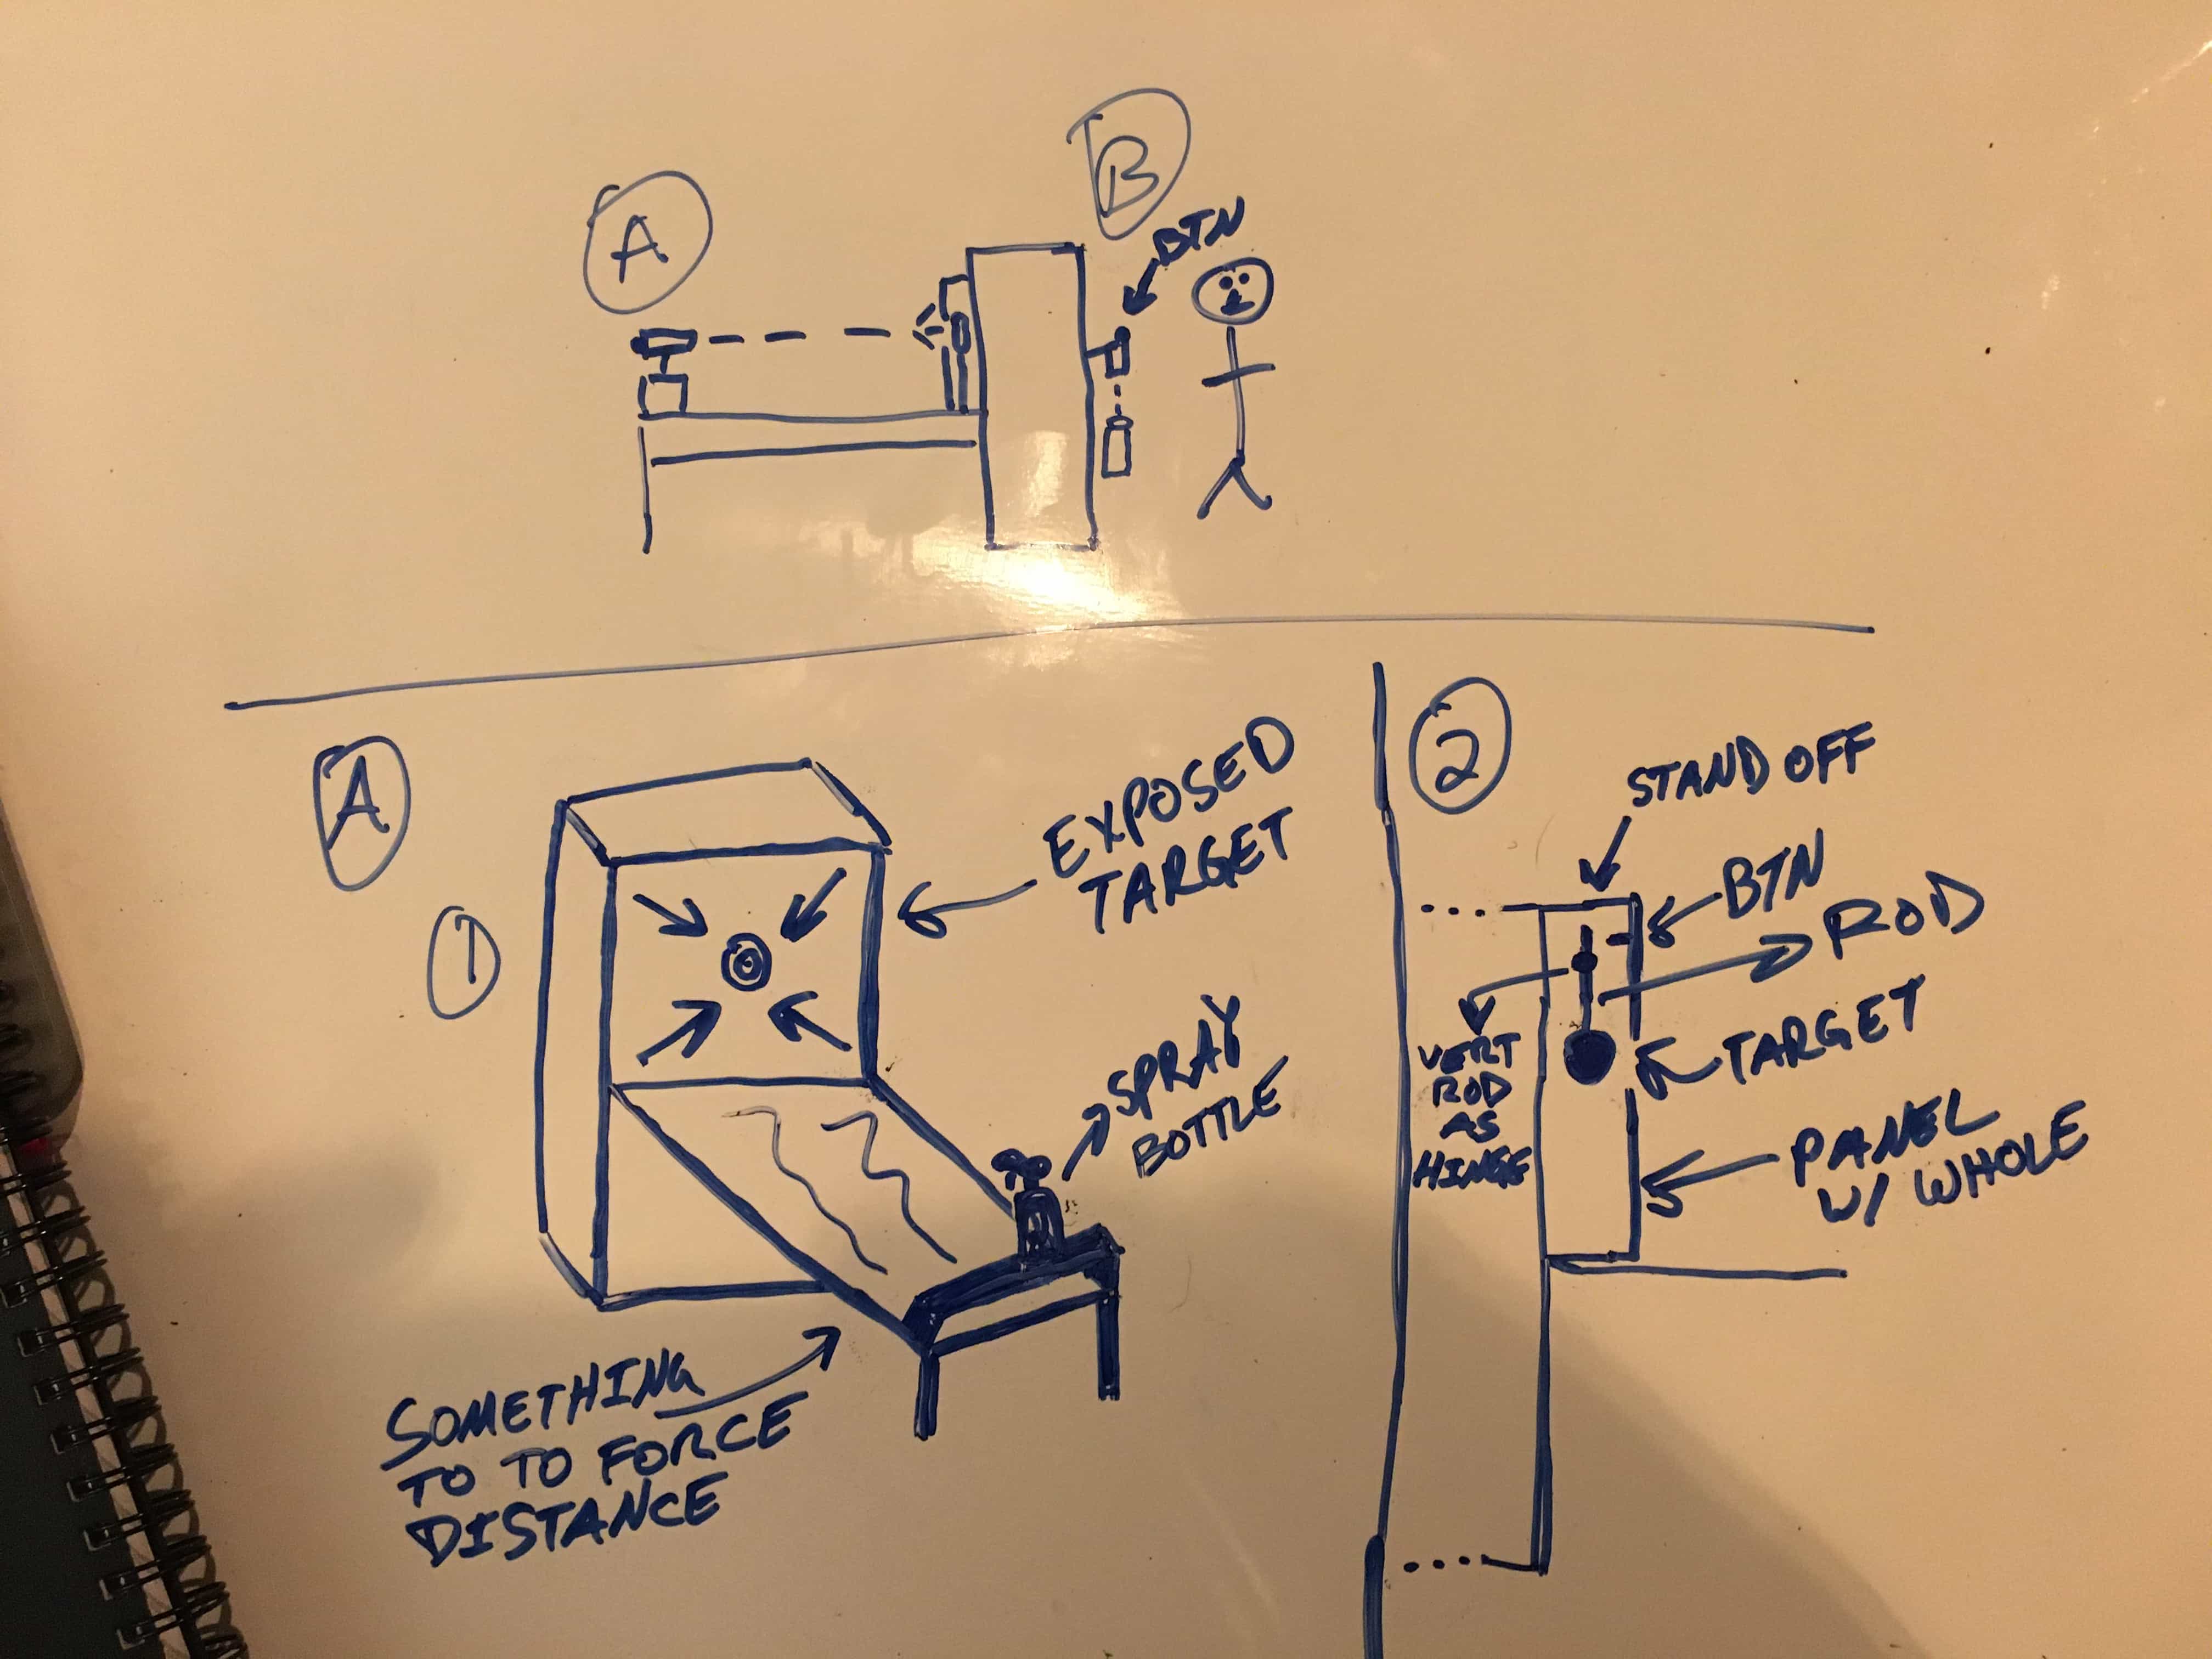 A
B
BTN
A
1
EXPOSED
TARGET
SPRAY
BOTTLE
SOMETHING
TO TO FORCE
DISTANCE
2
STAND OFF
BTN
ROD
TARGET
VERT
ROD
AS
HINGE
PANEL
W/ WHOLE